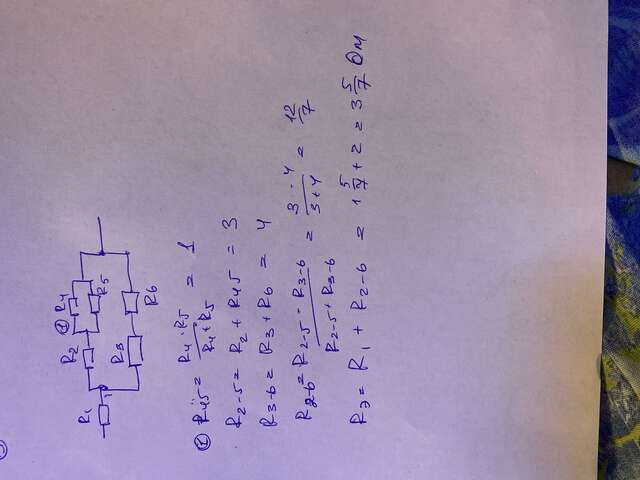 R1
R2
① R4
R5
R3
R6
① R45 = R4·R5 / R4+R5 = 1
R2-5 = R2 + R45 = 3
R3-6 = R3 + R6 = 4
R2-6 = R2-5 · R3-6 / R2-5 + R3-6 = 3·4 / 3+4 = 12/7
Rэ = R1 + R2-6 = 1 5/7 + 2 = 3 5/7 Ом